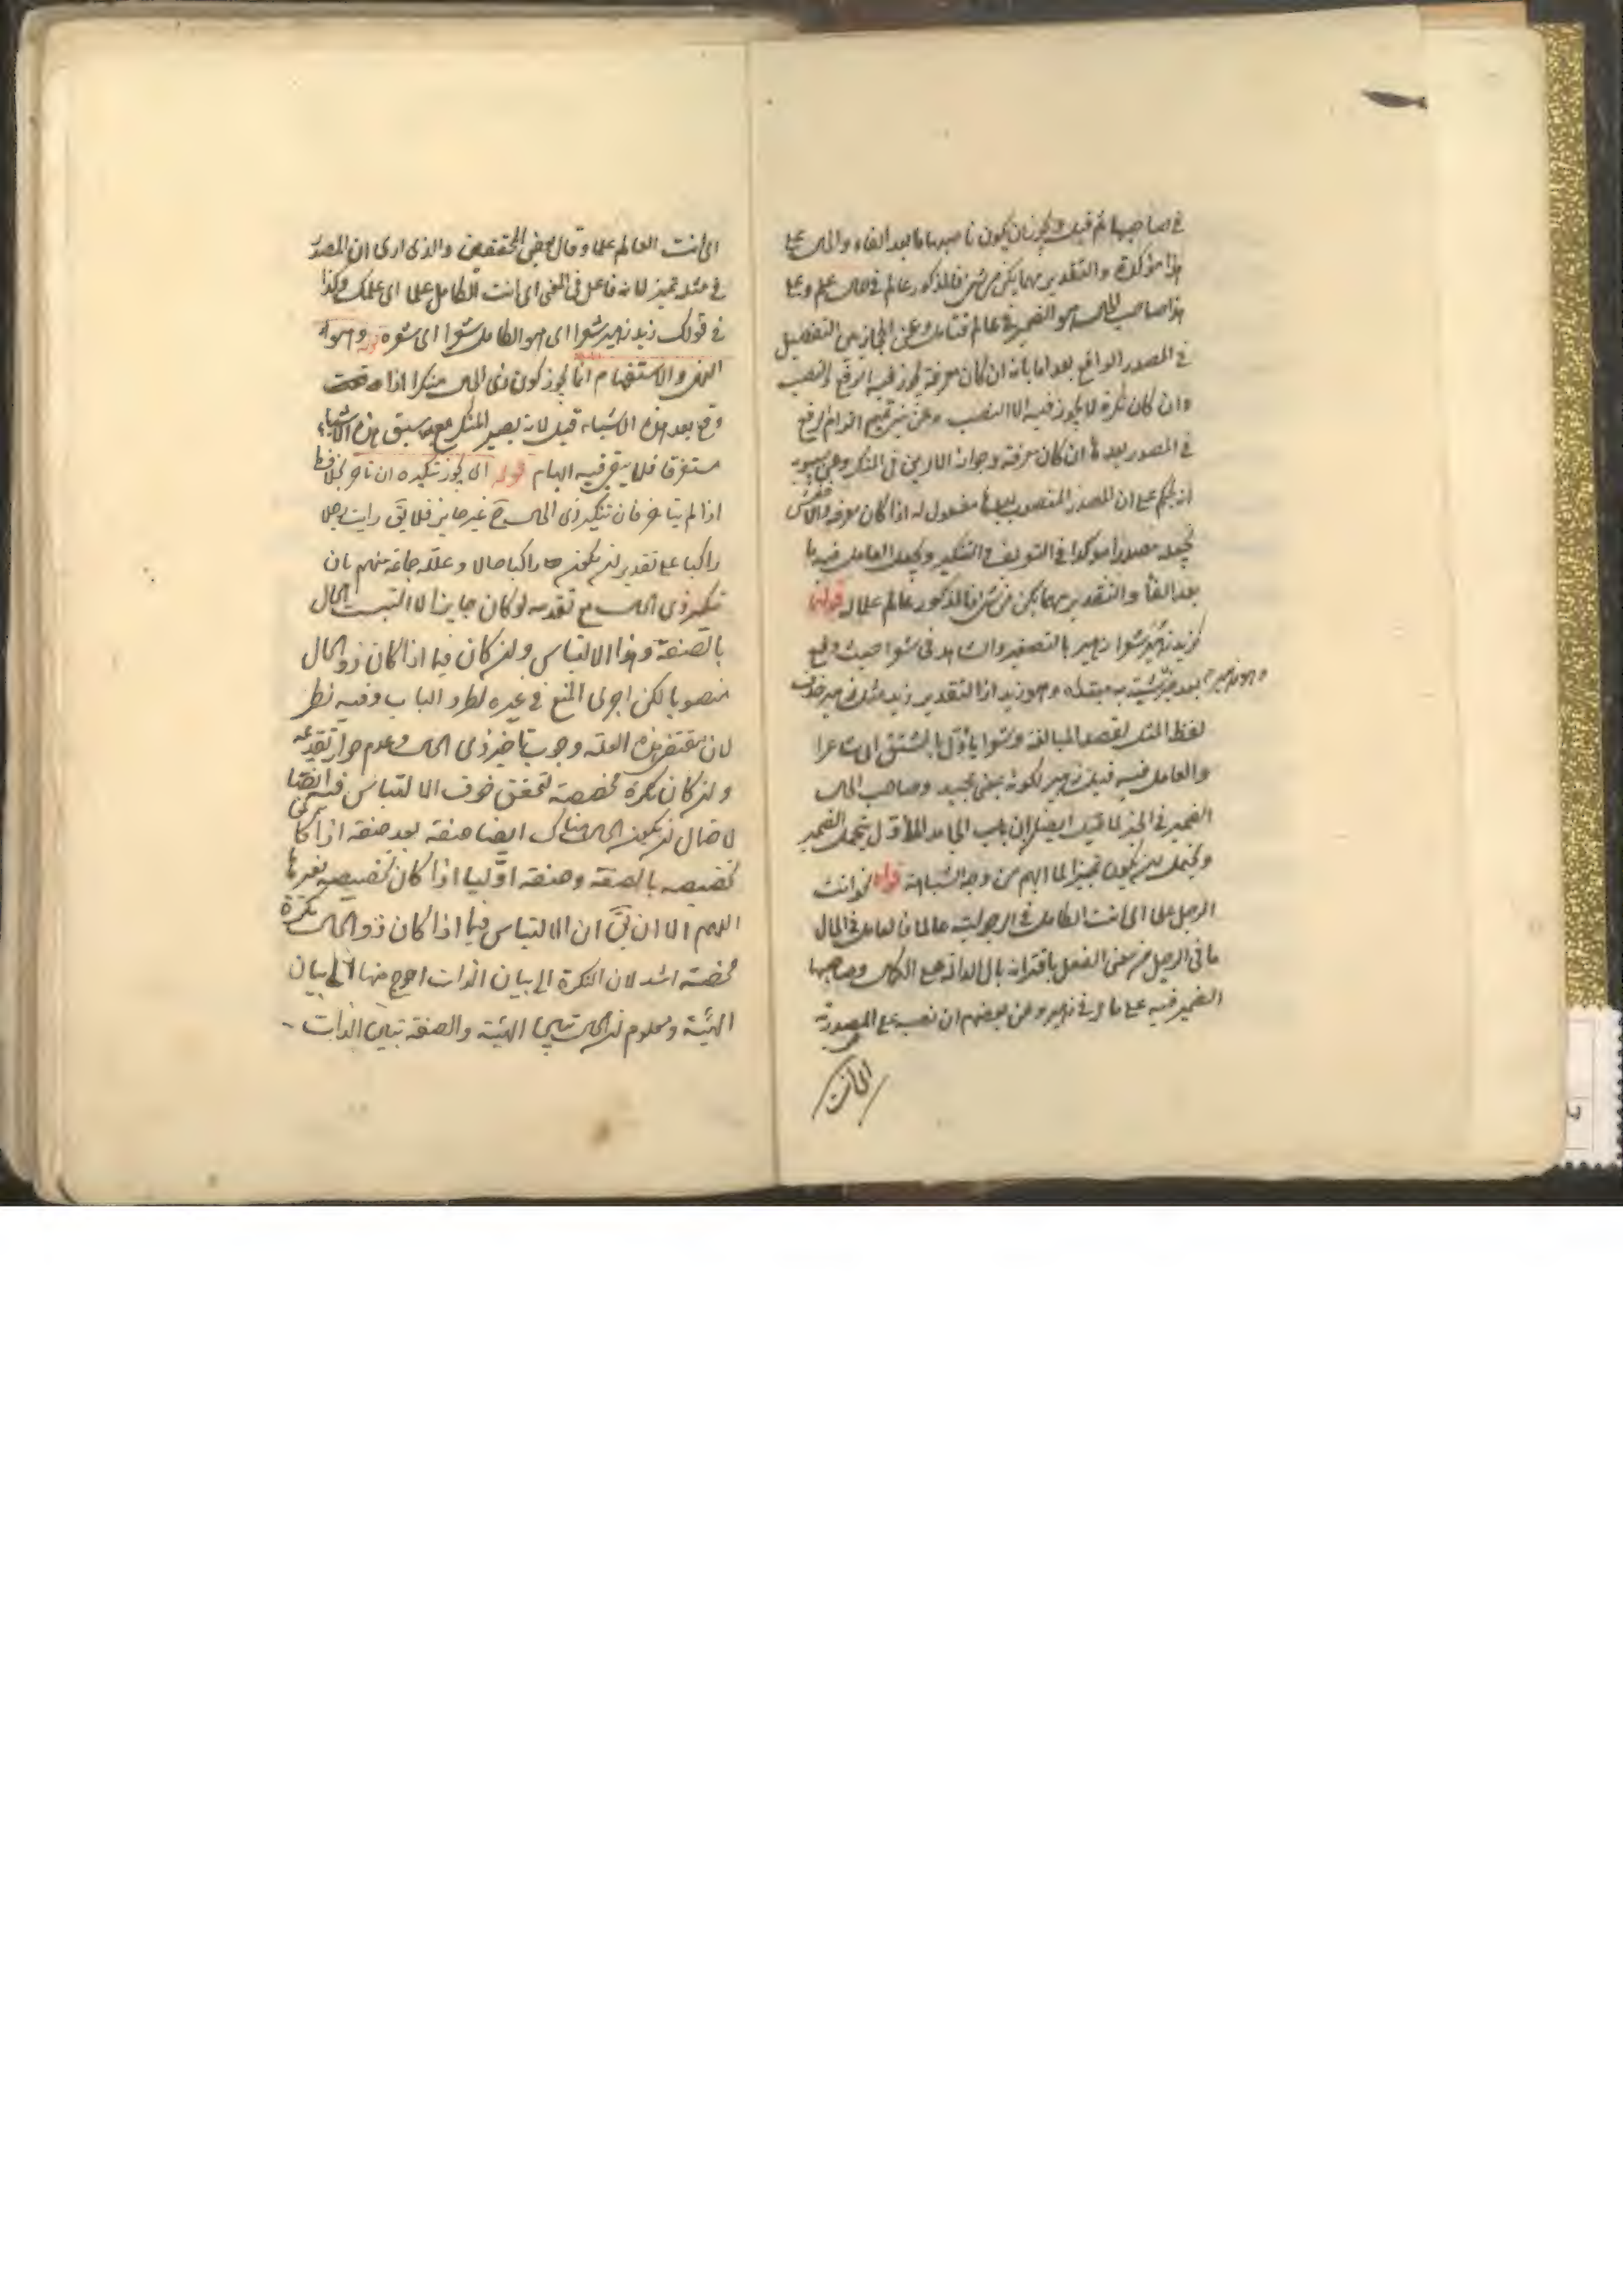 في صاحبها ثم قيل ويجوز ان يكون ناصبها ما بعد الفاء والحال على
هذا مؤكدة والتقدير مهما يكن من شئ فالمذكور عالم في حال علم وعلى
هذا صاحب الحال هو الضمير في عالم فتامل وعن الحجازيين التفصيل
في المصدر الواقع بعد اما بانه ان كان معرفة يجوز فيه الرفع والنصب
وان كان نكرة لا يجوز فيه الا النصب وعن بني تميم التزام الرفع
في المصدر بعدها ان كان معرفة وجواز الامرين في المنكر وعن سيبويه
انه يحكم على ان المصدر المنصوب بعدها مفعول له اذا كان معرفة والاخفش
يجعله مصدرا مؤكدا في التعريف والتنكير ويجعل العامل فيه ما
بعد الفاء والتقدير مهما يكن من شئ فالمذكور عالم علما قوله نحو
زيد زهير شعرا زهير بالتصغير والشاهد في شعرا حيث وقع
بعد خبر شبه به مبتداه وهو زيد اذ التقدير زيد مثل زهير فحذف
وهو زهير
لفظ المثل لقصد المبالغة وشعرا ياول بالمشتق اى شاعرا
والعامل فيه قيل زهير لكونه بمعنى مجيد وصاحب الحال
الضمير في الخبر لما قيل ايضا ان باب الجامد المأول يتحمل الضمير
ويحتمل ان يكون تميزا لما ابهم من وجه الشباهة قوله نحو انت
الرجل علما اى انت الكامل في الرجولية عالما فالعامل في الحال
ما في الرجل من معنى الفعل باقترانه بال الدالة على الكمال وصاحبها
الضمير فيه على ما مر في زهير وعن بعضهم ان نصبه على المصدرية
اى انت
اى انت العالم علما وقال بعض المحققين والذى ارى ان المصدر
في مثله تميز لانه فاعل في المعنى اى انت الكامل علما اى علمك وكذا
في قولك زيد زهير شعرا اى هو الكامل شعرا اى شعره قوله وهو
النهى والاستفهام انما يجوز كون ذى الحال منكرا اذا
وقع بعد هذه الاشياء قيل لانه يصير المنكر مع سبق هذه الاشياء
مستغرقا فلا يبقى فيه ابهام قوله اى يجوز تنكيره ان تاخر بخلاف
اذا لم يتاخر فان تنكير ذى الحال ح غير جايز فلا يق رايت رجلا
راكبا على تقدير ان يكون راكبا حالا وعلله جماعة منهم بان
تنكير ذى الحال مع تقدمه لو كان جايزا لالتبست الحال
بالصفة وهذا الالتباس وان كان فيما اذا كان ذو الحال
منصوبا لكن اجرى المنع في غيره لطرد الباب وفيه نظر
لان مقتضى هذه العلة وجوب تاخير ذى الحال وعدم جواز تقديمه
وان كان نكرة مخصصة لتحقق خوف الالتباس فيه ايضا
لاحتمال ان يكون الحال هناك ايضا صفة بعد صفة اذا كان
تخصيصه بالصفة وصفة اوليا اذا كان تخصيصه بغيرها
اللهم الا ان يق ان الالتباس فيما اذا كان ذو الحال نكرة
محضة اشد لان النكرة الى بيان الذات احوج منها الى بيان
الهيئة ومعلوم ان الحال تبين الهيئة والصفة تبين الذات